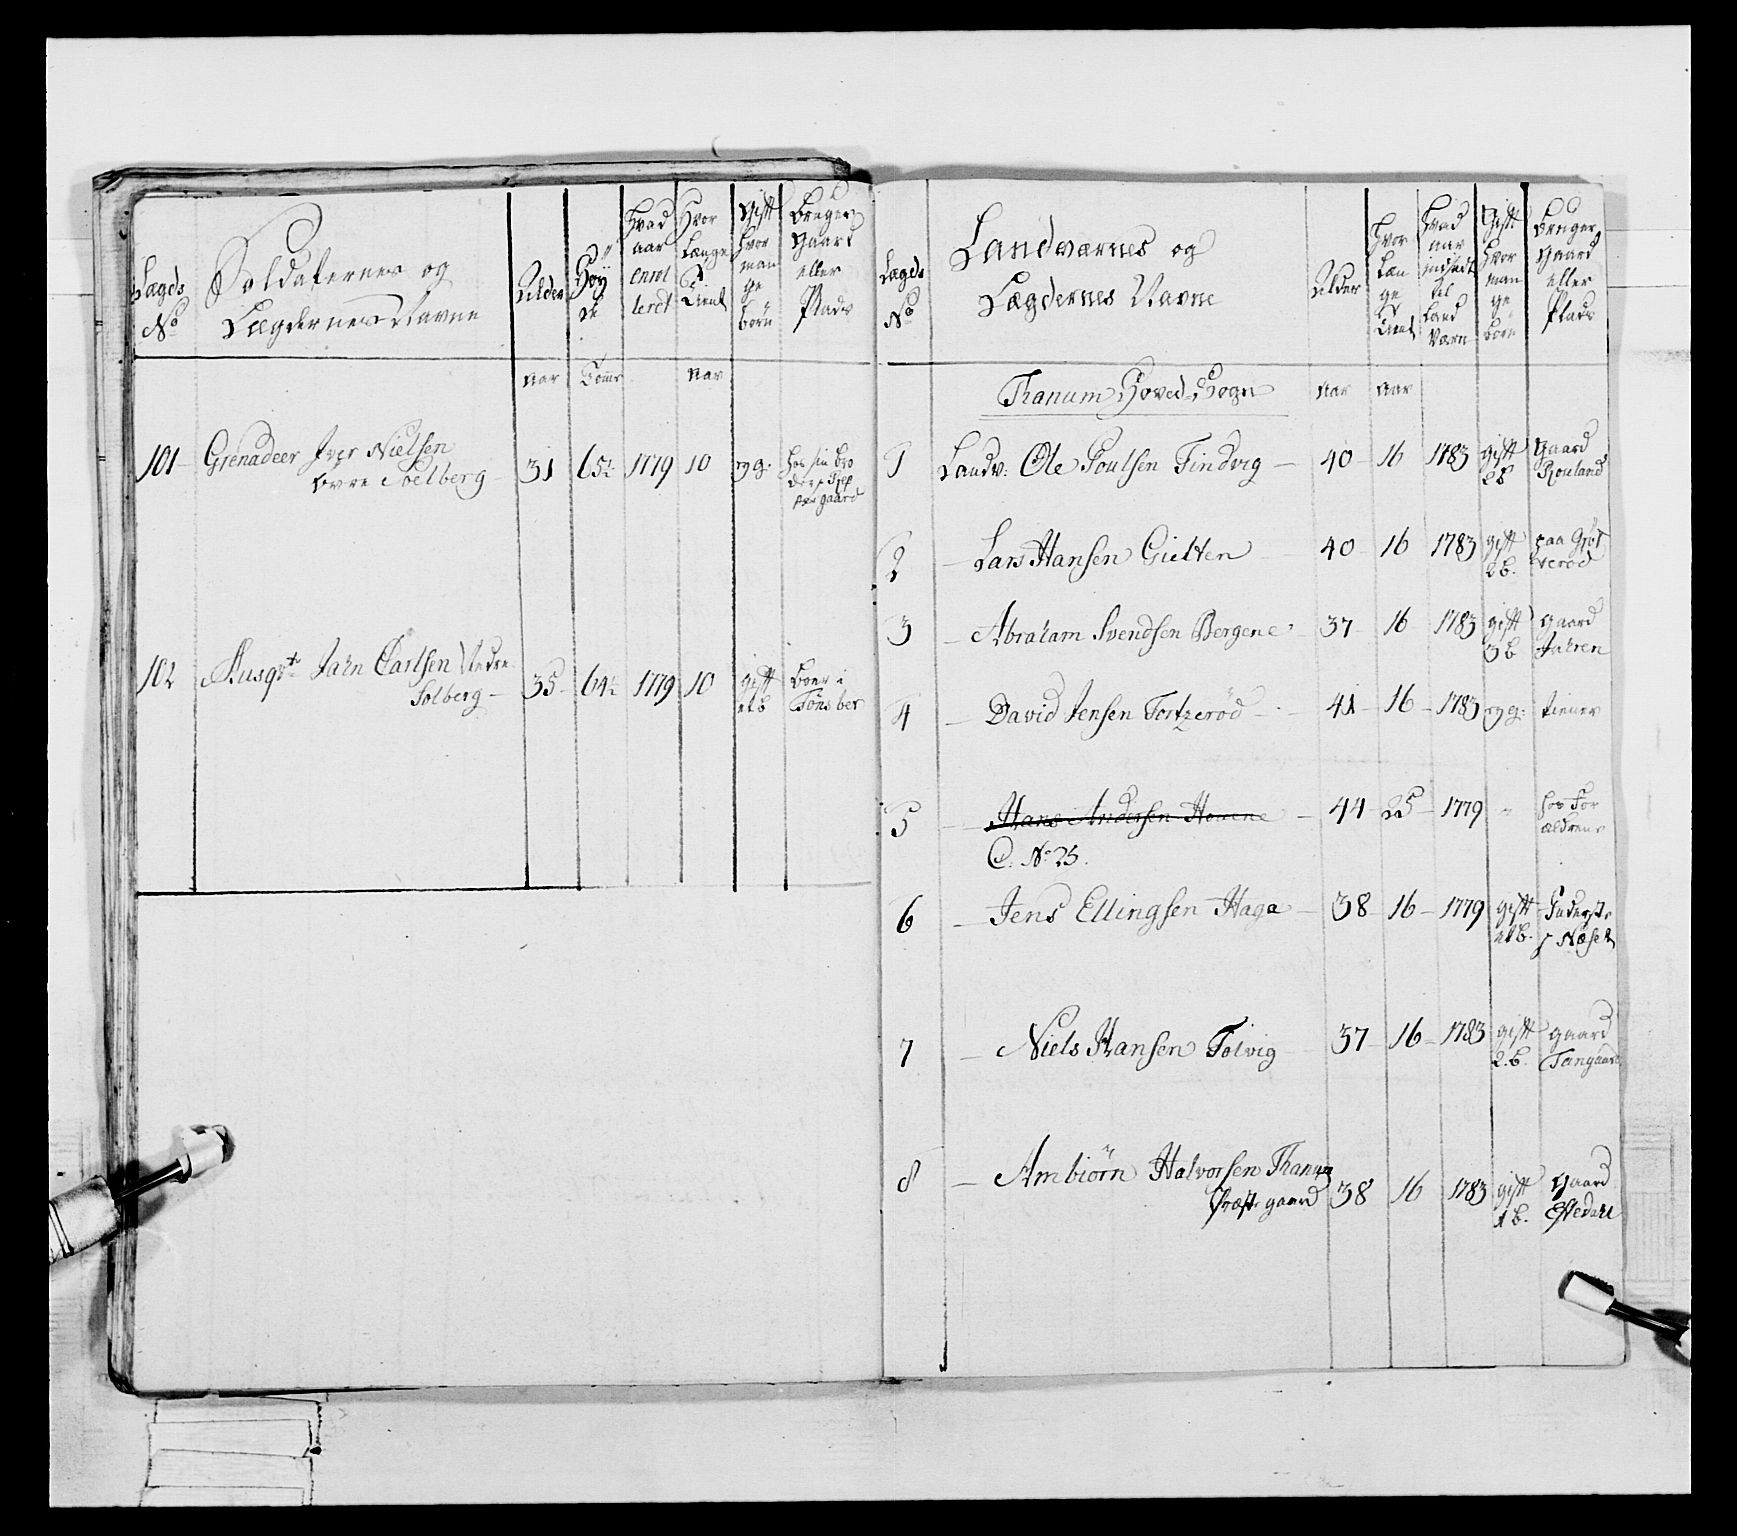 Lægds No
Soldaternes og
Lægdernes Navne
Alder
Høyde
Hvad aar enrolleret
Hvor længe tient
Gift hvor mange børn
Bruger Gaard eller Plads
aar Tomr aar
101 Grenadeer Iver Nielsen
øvre Soelberg 31 65½ 1779 10 ug. hos sin Bro
gaard
102 Musqt Jahn Carlsen Nedre
Solberg 35 64½ 1779 10 gift 1 b Boer i
Tønsber
Lægds No
Landværnes og
Lægdernes Navne
Alder
Hvor længe tient
Hvad aar indsadt til Land Værn
Gift hvor mange børn
Bruger Gaard eller Plads
Thanum Hoved-Sogn aar aar
1 Landv: Ole Poulsen Findvig 40 16 1783 gift Gaard
Rouland
2 Lars Hansen Gielten 40 16 1783 gift
2 b.
3 Abraham Svendsen Bergene 37 16 1783 gift Gaard
3 b Jahren
4 David Jensen Fortzerød 41 16 1783 ug: tiener
5 Hans Andersen Houene 44 25 1779 hos For
ældrene
C. No 25.
6 Jens Ellingsen Haga 38 16 1779 gift Inderst
1 b. i Næset
7 Niels Hansen Folvig 37 16 1783 gift gaard
2.b.
8 Ambiørn Halvorsen Thanum
Præste gaard 38 16 1783 gift Gaard
1 b.